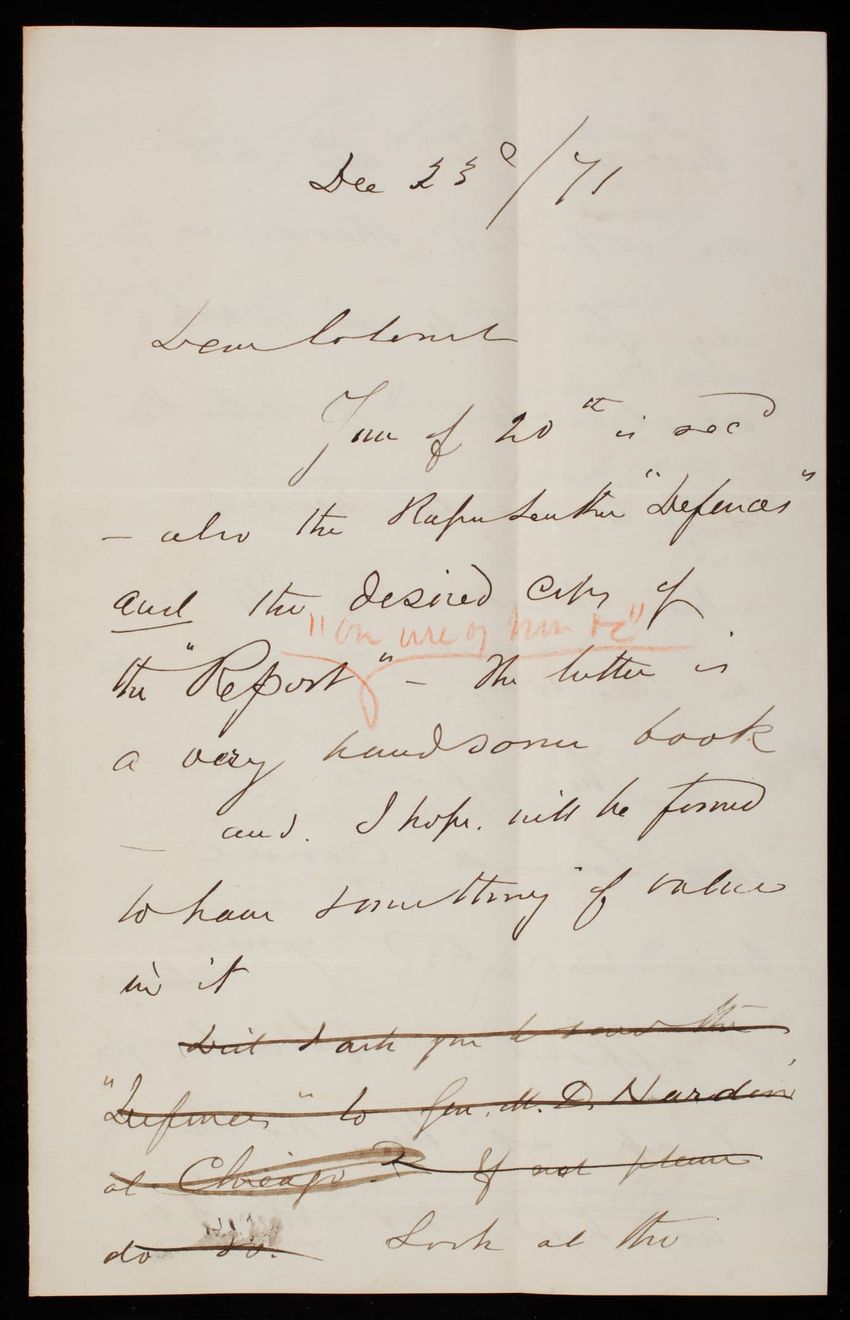 Dec 23d/71
Dear Colonel
Your of 20th is recd
- also the "Defences"
and the desired copy of
"On use of
the "Report" - The latter is
a very handsome book
and. I hope. will be found
to have something of value
in it
Did I ask you to send the
"Defences" to Gen. M. D. Hardin
at Chicago? If not please
do so. Look at the